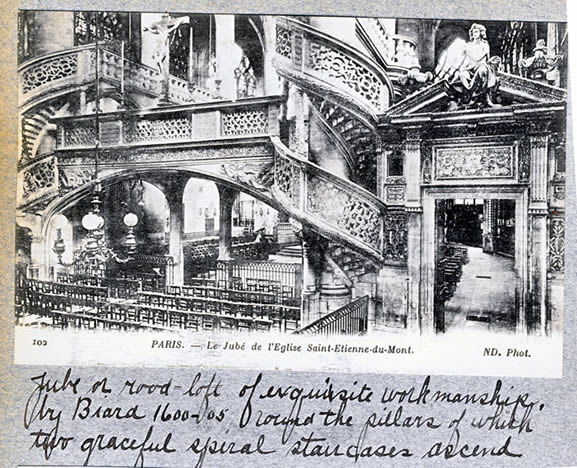 102 PARIS. — Le Jubé de l'Eglise Saint-Etienne-du-Mont. ND. Phot.
Jube or rood-loft of exquisite workmanship,
by Biard 1600-05, round the pillars of which
two graceful spiral staircases ascend